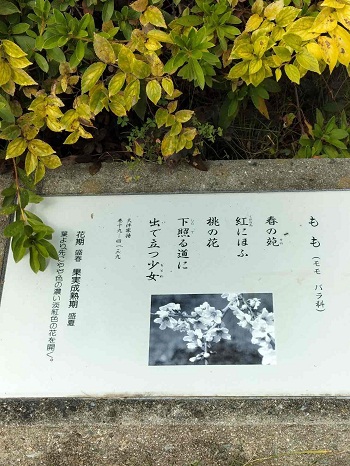 もも（モモ バラ科）
春の苑
紅にほふ
桃の花
下照る道に
出で立つ少女
大伴家持
巻十九・四一三九
花期 盛春 果実成熟期 盛夏
葉より先にやや色の濃い淡紅色の花を開く。